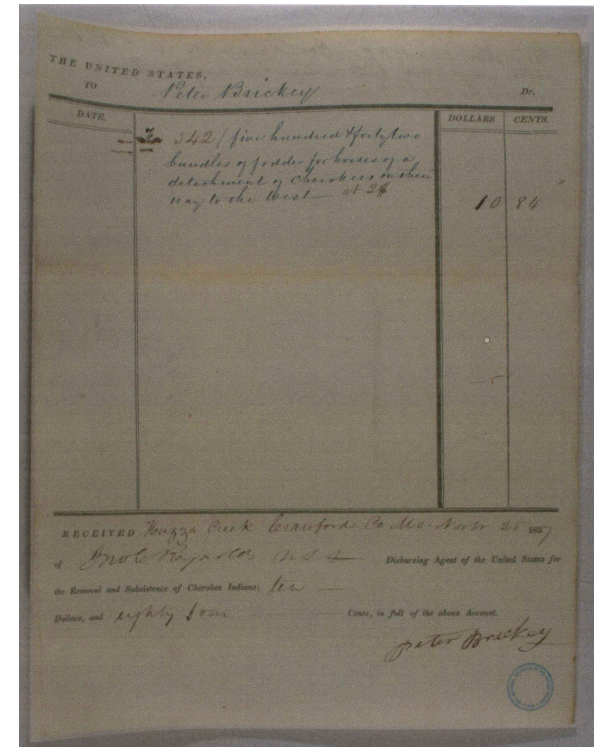 THE UNITED STATES,
TO Peter Brickey Dr.
DATE. DOLLARS CENTS.
542 / five hundred & forty two
bundles of fodder for horses of a
detachment of Cherokees on their
way to the West at 2¢ 10 84
RECEIVED Huzza Creek Crawford Co Mo. Novr 25 1837
of Jno C Reynolds Disbursing Agent of the United States for
the Removal and Subsistence of Cherokee Indians, ten
Dollars, and eighty four Cents, in full of the above Account.
Peter Brickey